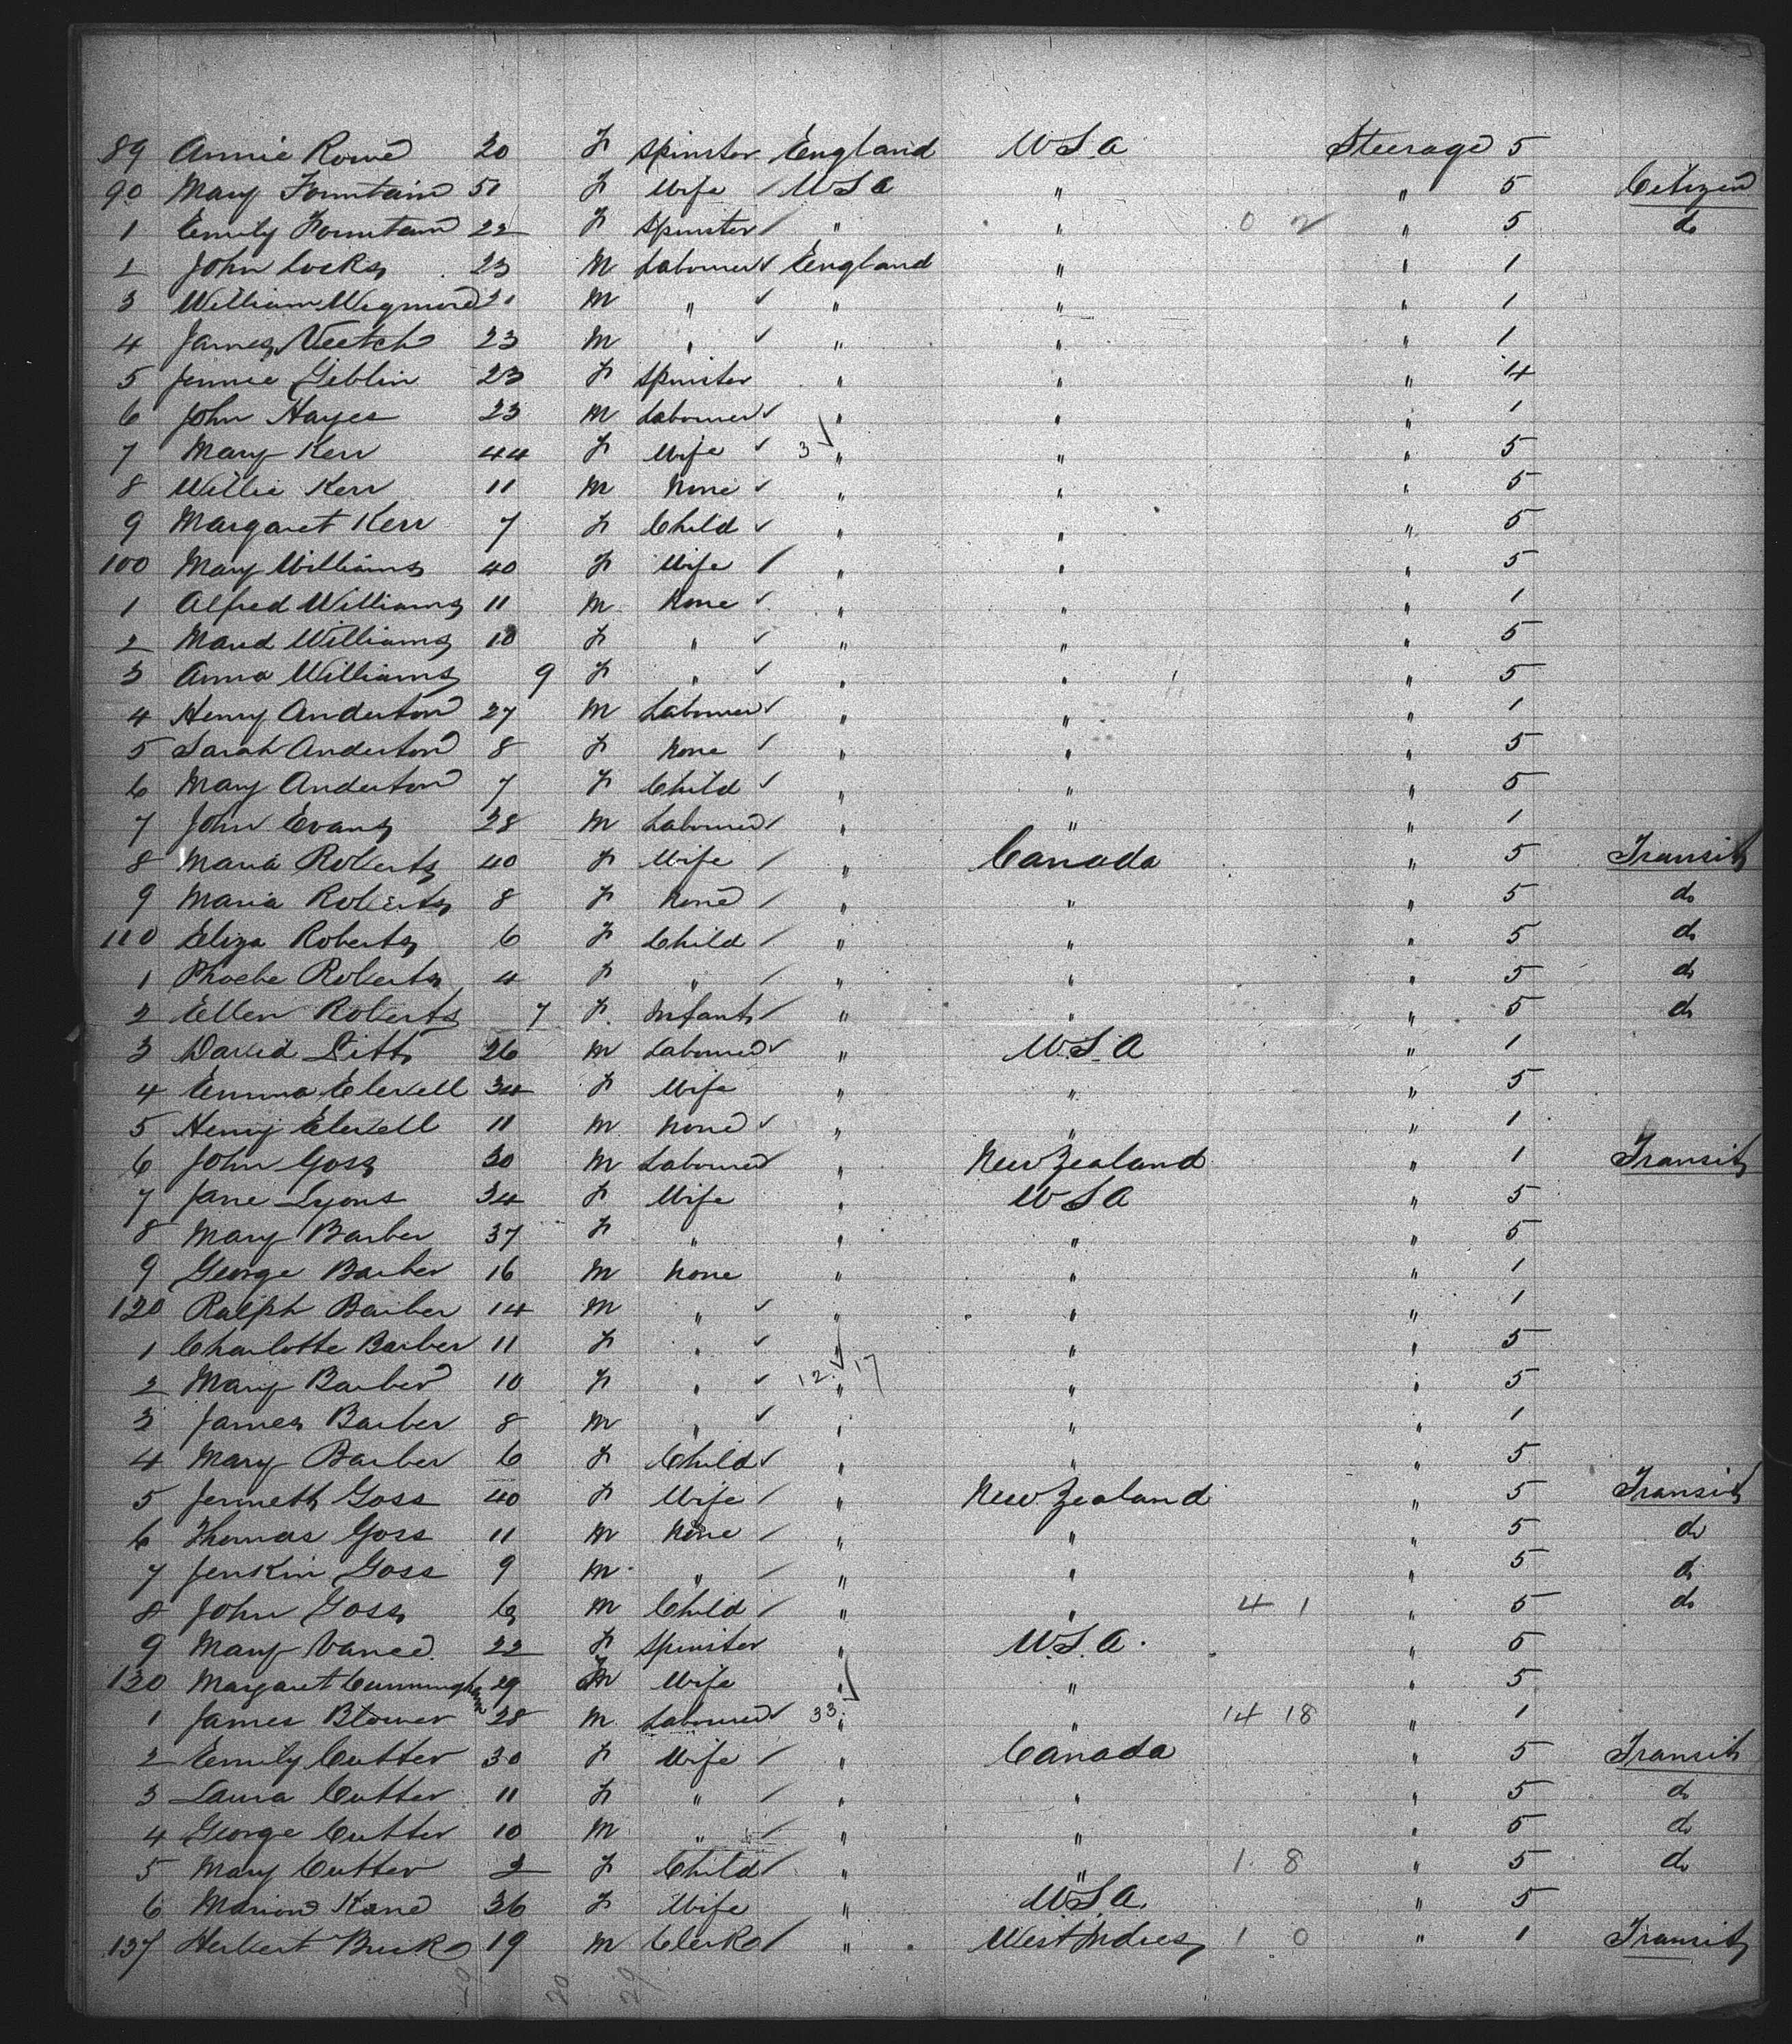 89 Annie Rowe 20 F Spinster England U S A Steerage 5
90 Mary Fountain 51 F Wife / U S A " " 5 Citizen
1 Emily Fountain 22 F Spinster / " " 0 2 " 5 do
2 John Locks 23 M Labourer ✓ England " " 1
3 William Wigmore 21 M " ✓ " " " 1
4 James Veetch 23 M " ✓ " " " 1
5 Jennie Giblin 23 F Spinster " " " 4
6 John Hayes 23 M Labourer ✓ " " " 1
7 Mary Kerr 44 F Wife ✓ 3 " " " 5
8 Willie Kerr 11 M None ✓ " " " 5
9 Margaret Kerr 7 F Child ✓ " " " 5
100 Mary Williams 40 F Wife / " " " 5
1 Alfred Williams 11 M None ✓ " " " 1
2 Maud Williams 10 F " ✓ " " " 5
3 Anna Williams 9 F " ✓ " " " 5
4 Henry Anderton 27 M Labourer ✓ " " " 1
5 Sarah Anderton 8 F None ✓ " " " 5
6 Mary Anderton 7 F Child ✓ " " " 5
7 John Evans 28 M Labourer / " " " 1
8 Maria Roberts 40 F Wife / " Canada " 5 Transit
9 Maria Roberts 8 F None / " " " 5 do
110 Eliza Roberts 6 F Child / " " " 5 do
1 Phoebe Roberts 4 F " / " " " 5 do
2 Ellen Roberts 7 F Infant / " " " 5 do
3 David Pitt 26 M Labourer ✓ " U.S.A " 1
4 Emma Elevell 34 F Wife " " " 5
5 Henry Elevell 11 M None ✓ " " " 1
6 John Goss 30 M Labourer " New Zealand " 1 Transit
7 Jane Lyons 34 F Wife " U S A " 5
8 Mary Barber 37 F " " " " 5
9 George Barber 16 M None " " " 1
120 Ralph Barber 14 M " ✓ " " " 1
1 Charlotte Barber 11 F " ✓ " " " 5
2 Mary Barber 10 F " ✓ 12 " 17 " " 5
3 James Barber 8 M " ✓ " " " 1
4 Mary Barber 6 F Child ✓ " " " 5
5 Jenneth Goss 40 F Wife / " New Zealand " 5 Transit
6 Thomas Goss 11 M None / " " " 5 do
7 Jenkin Goss 9 M " / " " " 5 do
8 John Goss 6 M Child / " " 4 1 " 5 do
9 Mary Vance 22 F Spinster " U.S.A. " 5
130 Margaret Cunningham 29 Wife " " " 5
1 James Blower 28 M Labourer 33 " " 14 18 " 1
2 Emily Cutter 30 F Wife / " Canada " 5 Transit
3 Laura Cutter 11 F " / " " " 5 do
4 George Cutter 10 M " / " " " 5 do
5 Mary Cutter 2 F Child / " " 1 8 " 5 do
6 Marion Kane 36 F Wife " U.S.A. " 5
137 Herbert 19 M Clerk / " West Indies 1 0 " 1 Transit
20 29